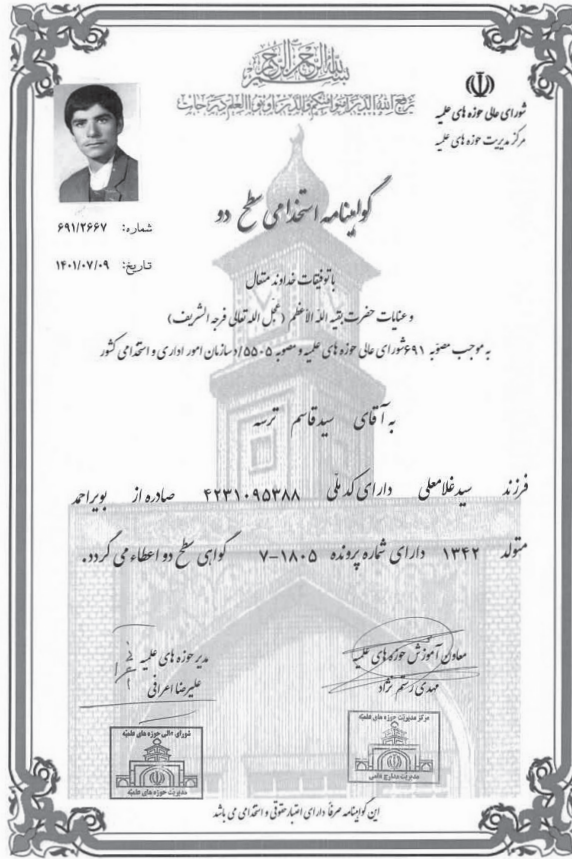 بسم الله الرحمن الرحیم
یرفع الله الذین آمنوا منکم والذین اوتوا العلم درجات
شورای عالی حوزه های علمیه
مرکز مدیریت حوزه های علمیه
گواهینامه استخدامی سطح دو
شماره: ۶۹۱/۲۶۶۷
تاریخ: ۱۴۰۱/۰۷/۰۹
با توفیقات خداوند متعال
و عنایات حضرت بقیه الله الاعظم (عجل الله تعالی فرجه الشریف)
به موجب مصوبه ۶۹۱ شورای عالی حوزه های علمیه و مصوبه ۵۵۰۵/د سازمان امور اداری و استخدامی کشور
به آقای سیدقاسم ترسه
فرزند سیدغلامعلی دارای کد ملی ۴۲۳۱۰۹۵۳۸۸ صادره از بویراحمد
متولد ۱۳۴۲ دارای شماره پرونده ۷-۱۸۰۵ گواهی سطح دو اعطاء می گردد.
معاون آموزش حوزه های علمیه
مهدی رستم نژاد
مدیر حوزه های علمیه
علیرضا اعرافی
مرکز مدیریت حوزه های علمیه
مدیریت مدارج علمی
شورای عالی حوزه های علمیه
مدیریت حوزه های علمیه
این گواهینامه صرفا دارای اعتبار حقوقی و استخدامی می باشد